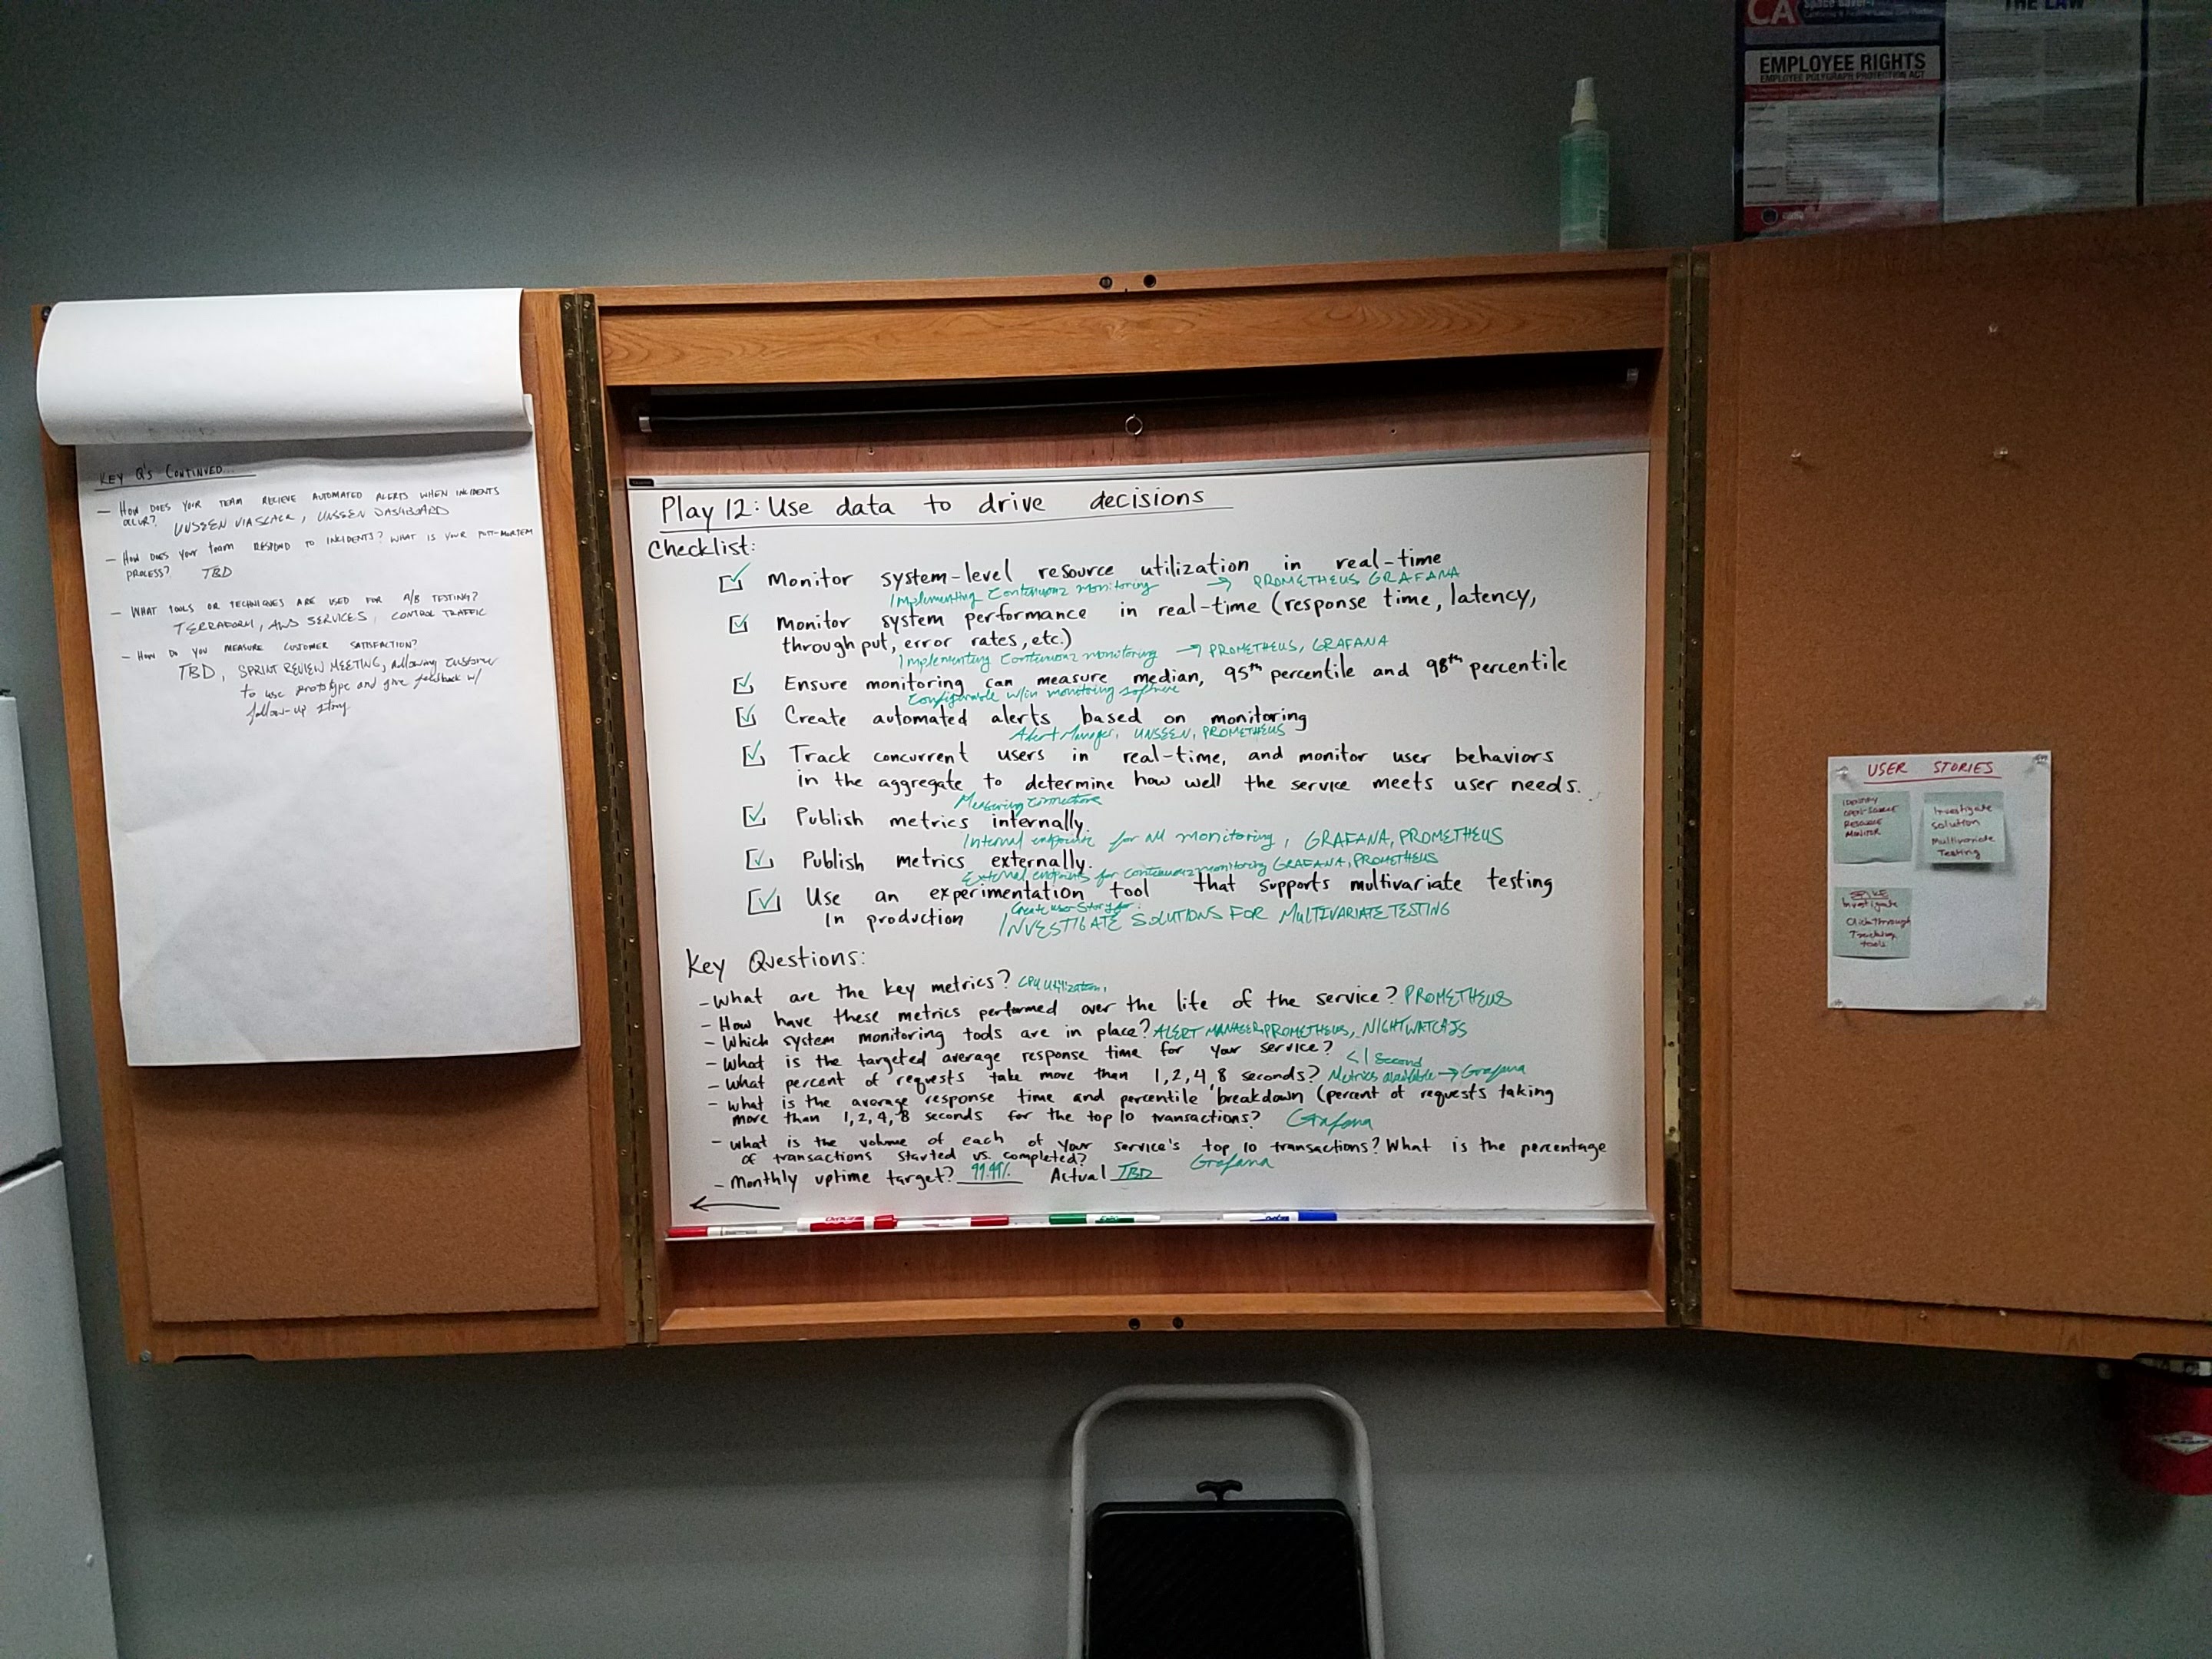 KEY Q'S CONTINUED...
- HOW DOES YOUR TEAM RECIEVE AUTOMATED ALERTS WHEN INCIDENTS
OCCUR? UNSEEN VIA SLACK, UNSEEN DASHBOARD
- HOW DOES YOUR TEAM RESPOND TO INCIDENTS? WHAT IS YOUR POST-MORTEM
PROCESS? TBD
- WHAT TOOLS OR TECHNIQUES ARE USED FOR A/B TESTING?
TERRAFORM, AWS SERVICES, CONTROL TRAFFIC
- HOW DO YOU MEASURE CUSTOMER SATISFACTION?
TBD, SPRINT REVIEW MEETING, allowing customer
to use prototype and give feedback w/
follow-up story
Play 12: Use data to drive decisions
Checklist:
Monitor system-level resource utilization in real-time
Implementing Continuous Monitoring → PROMETHEUS GRAFANA
Monitor system performance in real-time (response time, latency,
throughput, error rates, etc.)
Implementing Continuous monitoring → PROMETHEUS, GRAFANA
Ensure monitoring can measure median, 95th percentile and 98th percentile
Configurable w/in monitoring software
Create automated alerts based on monitoring
Alert Manager, UNSEEN, PROMETHEUS
Track concurrent users in real-time, and monitor user behaviors
in the aggregate to determine how well the service meets user needs.
Measuring connections
Publish metrics internally
Internal endpoints for all monitoring, GRAFANA, PROMETHEUS
Publish metrics externally.
External endpoints for continuous monitoring GRAFANA, PROMETHEUS
Use an experimentation tool that supports multivariate testing
in production
Create User Story for:
INVESTIGATE SOLUTIONS FOR MULTIVARIATE TESTING
Key Questions:
- What are the key metrics? CPU Utilization,
- How have these metrics performed over the life of the service? PROMETHEUS
- Which system monitoring tools are in place? ALERT MANAGER, PROMETHEUS,
- What is the targeted average response time for your service? < 1 Second
- What percent of requests take more than 1, 2, 4, 8 seconds? Metrics available → Grafana
- What is the average response time and percentile breakdown (percent of requests taking
more than 1, 2, 4, 8 seconds for the top 10 transactions? Grafana
- What is the volume of each of your service's top 10 transactions? What is the percentage
of transactions started vs. completed? Grafana
- Monthly uptime target? 99.99% Actual TBD
CA
Space Saver-1
THE LAW
EMPLOYEE RIGHTS
EMPLOYEE POLYGRAPH PROTECTION ACT
USER STORIES
IDENTIFY
OPEN-SOURCE
RESOURCE
MONITOR
Investigate
Solution
Multivariate
Testing
SPIKE
Investigate
Clickthrough
Tracking
tools